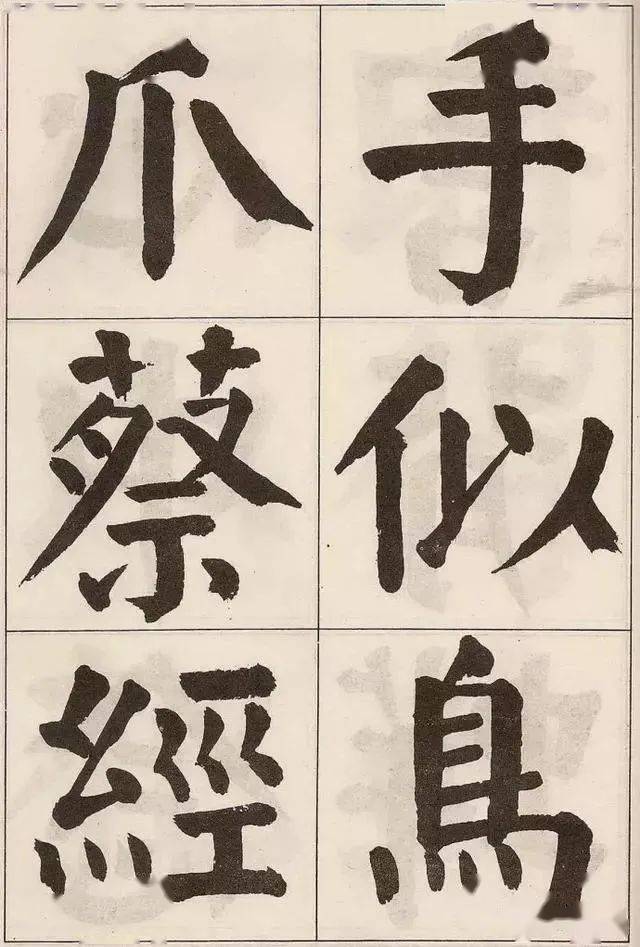 手似鳥
爪蔡經